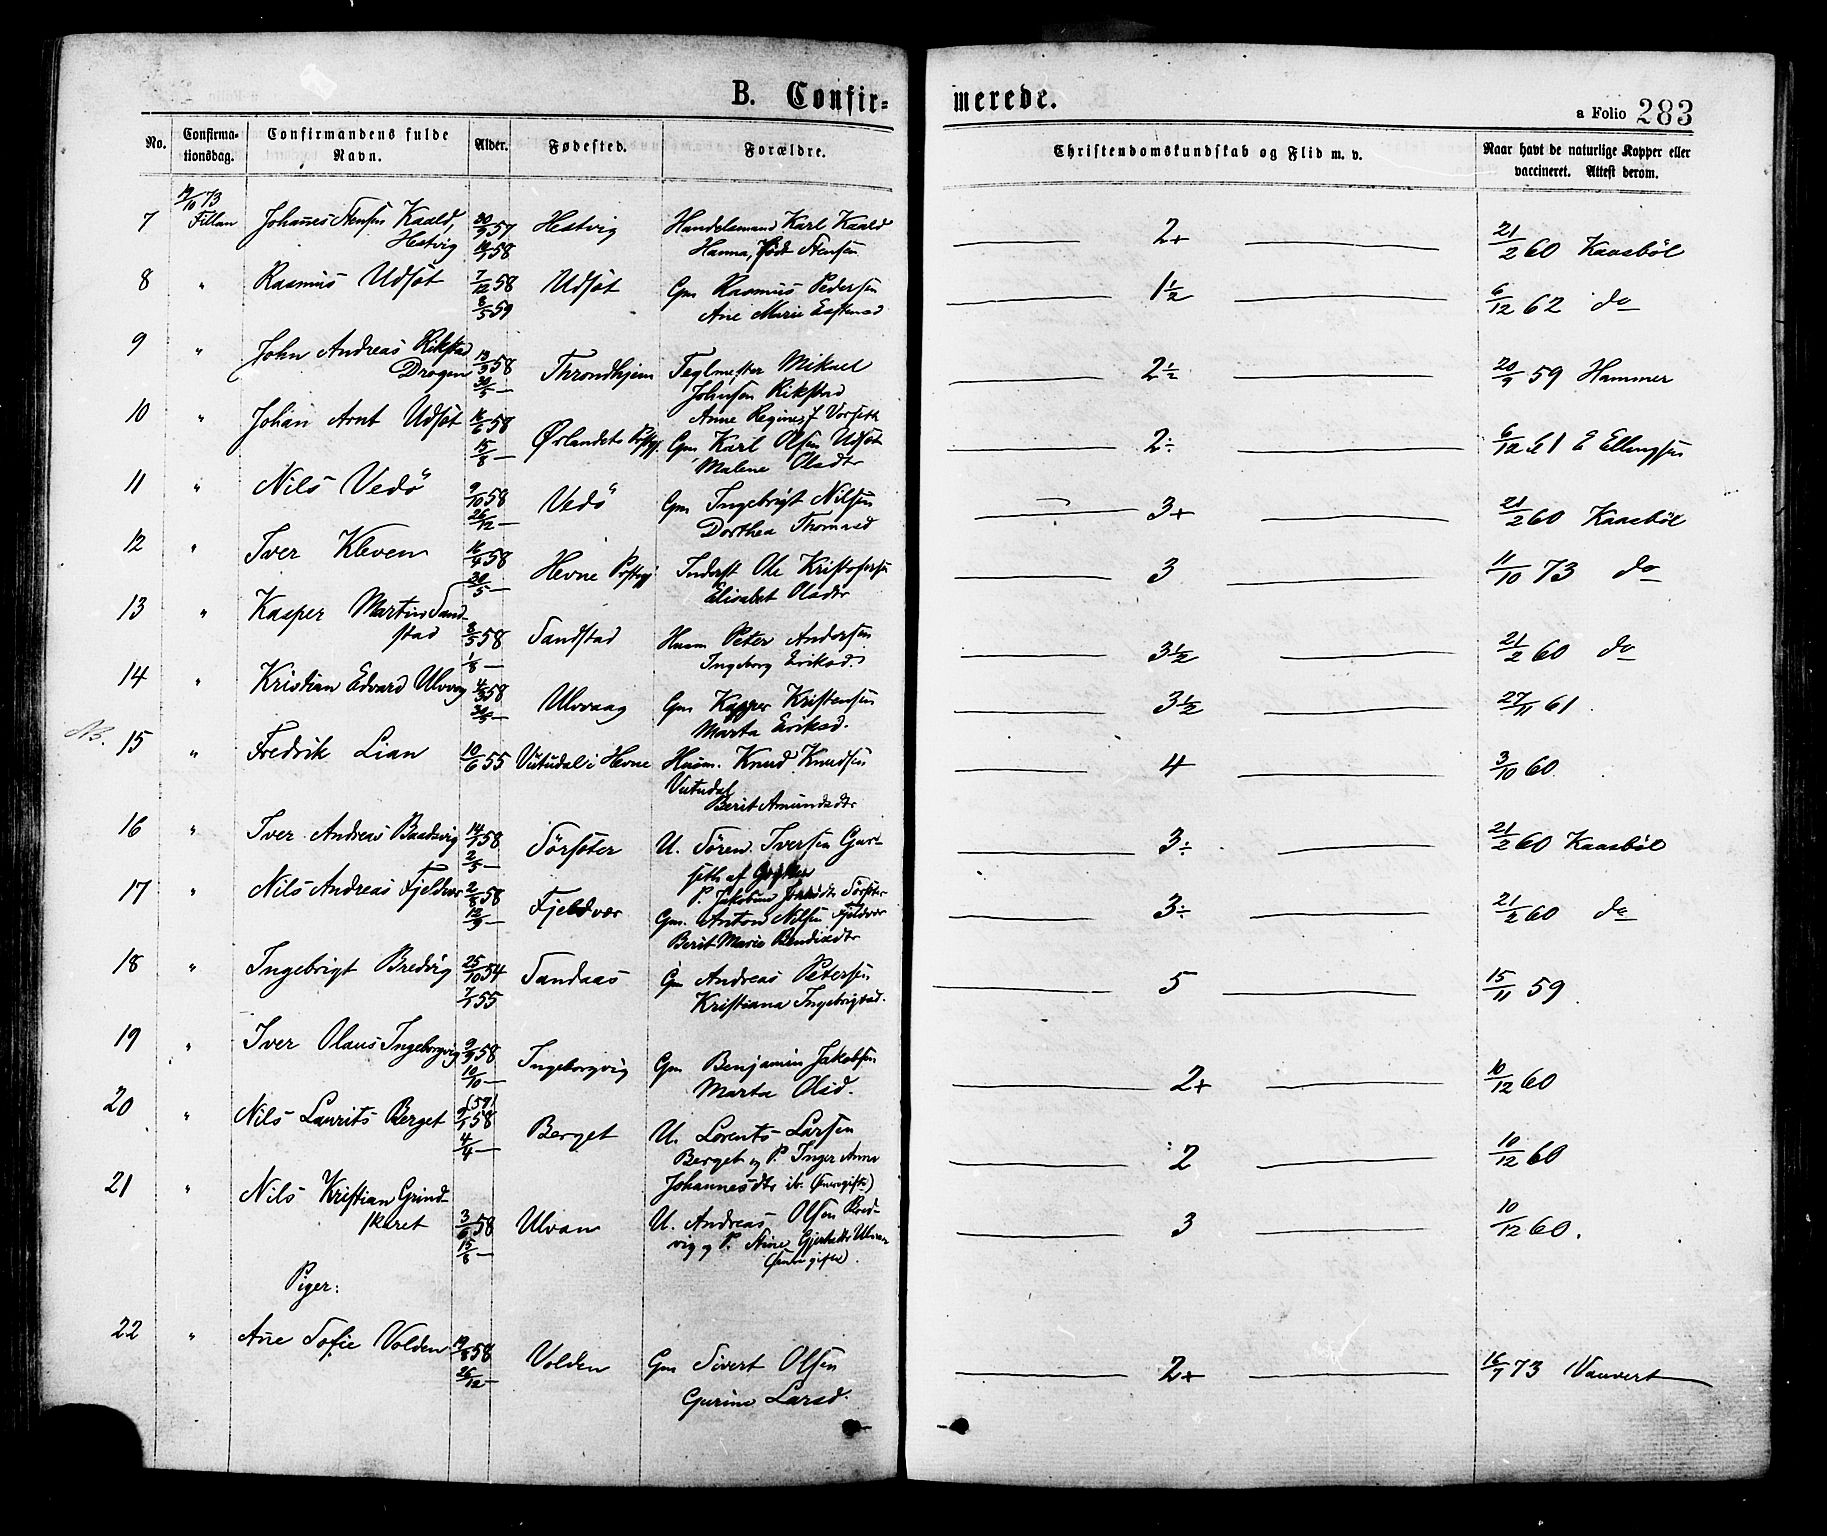 B. Confir=
merede.
a Folio 283
No.
Confirma-
tionsdag.
Confirmandens fulde
Navn.
Alder.
Fødested.
Forældre.
Christendomskundskab og Flid m. v.
Naar havt de naturlige Kopper eller
vaccineret. Attest derom.
19/10 73
7 Fillan Johanes Stensen Kaald, 30/9 57 Hestvig Handelsmand Karl Kaald 2+ 21/2 60 Kaasbøl
Hestvig 58 Hanna, født Stensen
8 " Rasmus Udsøt 7/12 58 Udsøt Gm Rasmus Pedersen 1½ 6/12 62 do
8/5 59 Ane Marie
9 " John Andreas Rikstad 13/3 58 Throndhjem Teglmester Mikael 2½ 59 Hammer
Dragen 30/5 — Johnsen Rikstad
Anne Regine f Vorseth
10 " Johan Arnt Udsøt 16/6 58 Ørlandets Prstgj. Gm Karl Olsen Udsøt 2÷ 6/12 61 E Ellingsen
15/8 — Malene Olsdtr
11 " Nils Vedö 9/10 58 Vedö Gm Ingebrigt Nilsen 3+ 21/2 60 Kaasbøl
26/12 — Dorthea Thomasd
12 " Iver Kleven 16/4 58 Hevne Prstgj Inderst Ole Kristofersen 3 11/10 73 do
30/5 — Elisabet Olsdtr
13 " Kasper Martin Sand-
stad 8/5 58 Sandstad Husm Peter Andersen 3½ 21/2 60 do
1/8 — Ingeborg Eriksd.
14 " Kristian Edvard Ulvvag 4/3 58 Ulvvaag Gm Kasper Kristensen 3½ 27/11 61.
Marta Eriksd.
NB. 15 " Fredrik Lian 10/6 55 Vutudal i Hevne Husm. Knud Knudsen 4 3/10 60.
Vutudal
Berit Amundsdtr
16 " Iver Andreas Baadsvig 14/1 58 Sörsöter U. Sören Iversen Gar- 3÷ 21/2 60 Kaasbøl
2/5 — seth af
P. Jakobine Sörsöter
17 " Nils Andreas Fjeldvær 58 Fjeldvær Gm. Anton Nilsen Fjeldvær 3÷ 21/2 60 do
12/9 — Berit Marie Bendixdtr
18 " Ingebrigt Bredvig 25/10 54 Sandaas Gm Andreas Petersen 5 15/11 59.
7/1 55 Kristiana Ingebrigtsd.
19 " Iver Olaus Ingeborgvig 9/9 58 Ingeborgvig Gm Benjamin Jakobsen 2+ 10/12 60
10/10 — Marta Olsd.
20 " Nils Laurits Berget 58 Berget U. Lorents Larsen 2 10/12 60
4/4 — Berget og P. Inger Anna
Johannesdtr ib. (Begge ugifte)
21 " Nils Kristian Grind-
skaret 3/6 58 Ulvan U. Andreas Olsen Bred- 3 10/12 60.
15/8 — vig og P.
Piger:
22 " Ane Sofie Volden 19/8 58 Volden Gm Sivert Olsen 2+ 16/7 73 Vauvert
26/12 — Gurine Larsd.